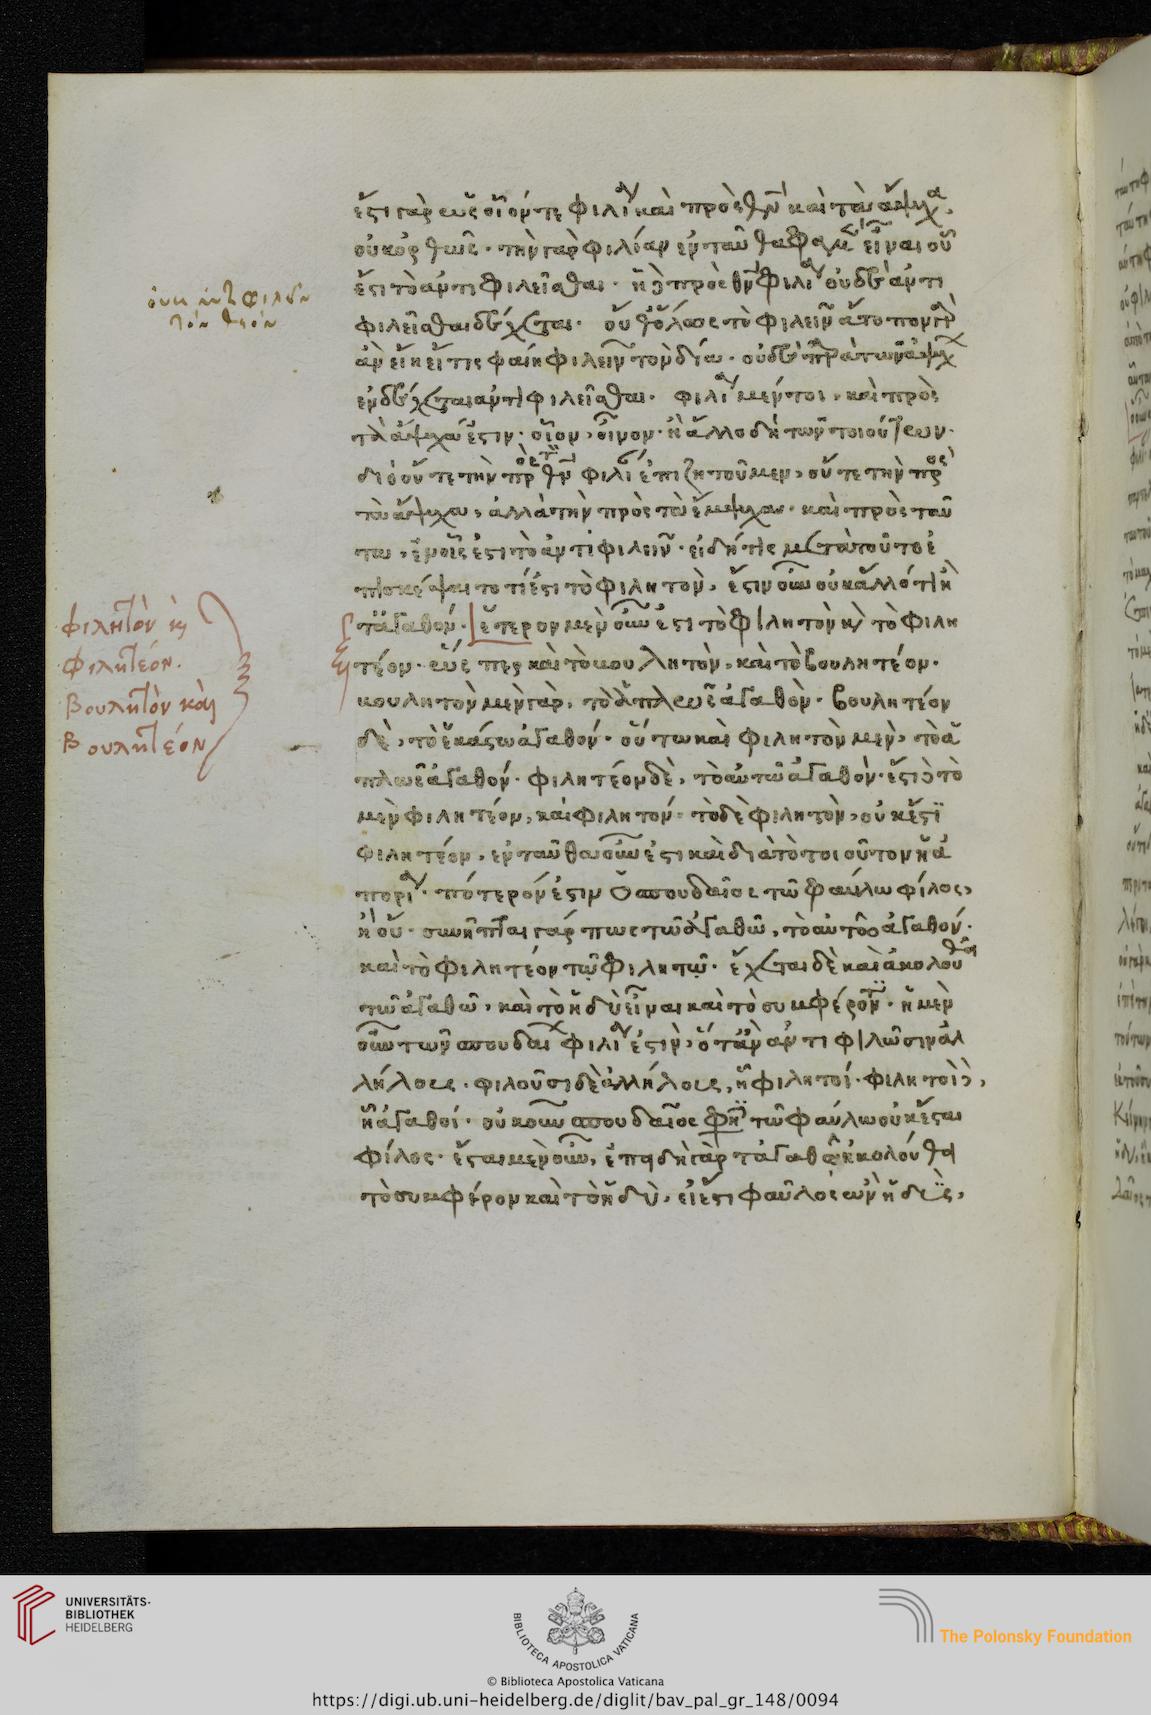 ἔστι γὰρ ὡς οἴονται φιλία καὶ πρὸς θεὸν καὶ τὰ ἄψυχα.
οὐκ ὀρθῶς. τὴν γὰρ φιλίαν ἐνταῦθα φαμὲν εἶναι οὗ
ἔστι τὸ ἀντιφιλεῖσθαι. ἡ δὲ πρὸς θεὸν φιλία οὐδὲ ἀντι
φιλεῖσθαι δέχεται. οὔθ' ὅλως τὸ φιλεῖν ἄτοπον γὰρ
ἂν εἴη εἴ τις φαίη φιλεῖν τὸν δία. οὐδὲ παρὰ τῶν ἀψύχων
ἐνδέχεται ἀντιφιλεῖσθαι. φιλία μέντοι, καὶ πρὸς
τὰ ἄψυχά ἐστιν. οἷον, οἶνον. ἢ ἄλλο δὴ τῶν τοιούτων.
διὸ οὔτε τὴν πρὸς τὸν θεὸν φιλίαν ἐπιζητοῦμεν, οὔτε τὴν πρὸς
τὰ ἄψυχα, ἀλλὰ τὴν πρὸς τὰ ἔμψυχα. καὶ πρὸς ταῦ
τα, ἐν οἷς ἐστι τὸ ἀντιφιλεῖν. εἰ δή τις μετὰ τοῦτο ἐ
πισκέψαιτο τί ἐστι τὸ φιλητὸν, ἔστιν οὖν οὐκ ἄλλό τι ἢ
τἀγαθόν. ἕτερον μὲν οὖν ἐστι τὸ φιλητὸν καὶ τὸ φιλη
τέον. ὥσπερ καὶ τὸ βουλητὸν, καὶ τὸ βουλητέον.
βουλητὸν μὲν γὰρ, τὸ ἁπλῶς ἀγαθὸν. βουλητέον
δὲ, τὸ ἑκάστω ἀγαθόν. οὕτω καὶ φιλητὸν μὲν, τὸ ἁ
πλῶς ἀγαθόν. φιλητέον δὲ, τὸ αὑτῶ ἀγαθὸν. ἔστι δὲ τὸ
μὲν φιλητέον, καὶ φιλητόν. τὸ δὲ φιλητὸν, οὐκ ἔστι
φιλητέον, ἐνταῦθα οὖν ἐστι καὶ διὰ τὸ τοιοῦτον ἡ ἀ
πορία. πότερόν ἐστιν ὁ σπουδαῖος τῶ φαύλω φίλος,
ἢ οὔ. συνῆπται γάρ πως τῶ ἀγαθῶ, τὸ αὑτῶ ἀγαθόν.
καὶ τὸ φιλητέον τῷ φιλητῷ. ἔχεται δὲ καὶ ἀκολουθεῖ
τῶ ἀγαθῶ, καὶ τὸ ἡδὺ εἶναι καὶ τὸ συμφέρον. ἡ μὲν
οὖν τῶν σπουδαίων φιλία ἐστὶν, ὅταν ἀντιφιλῶσιν ἀλ
λήλους. φιλοῦσι δὲ ἀλλήλους, ᾗ φιλητοί. φιλητοὶ δὲ,
ᾗ ἀγαθοί. οὐκοῦν σπουδαῖος φησὶ τῶ φαύλω οὐκ ἔσται
φίλος. ἔσται μὲν οὖν, ἐπειδὴ γὰρ τἀγαθῶ ἠκολούθει
τὸ συμφέρον καὶ τὸ ἡδὺ, εἰ ἔστι φαῦλος ὢν ἡδὺς,
φιλητὸν καὶ
φιλητέον.
Βουλητὸν καὶ
Βουλητέον
UNIVERSITÄTS-
BIBLIOTHEK
HEIDELBERG
BIBLIOTECA APOSTOLICA VATICANA
The Polonsky Foundation
© Biblioteca Apostolica Vaticana
https://digi.ub.uni-heidelberg.de/diglit/bav_pal_gr_148/0094